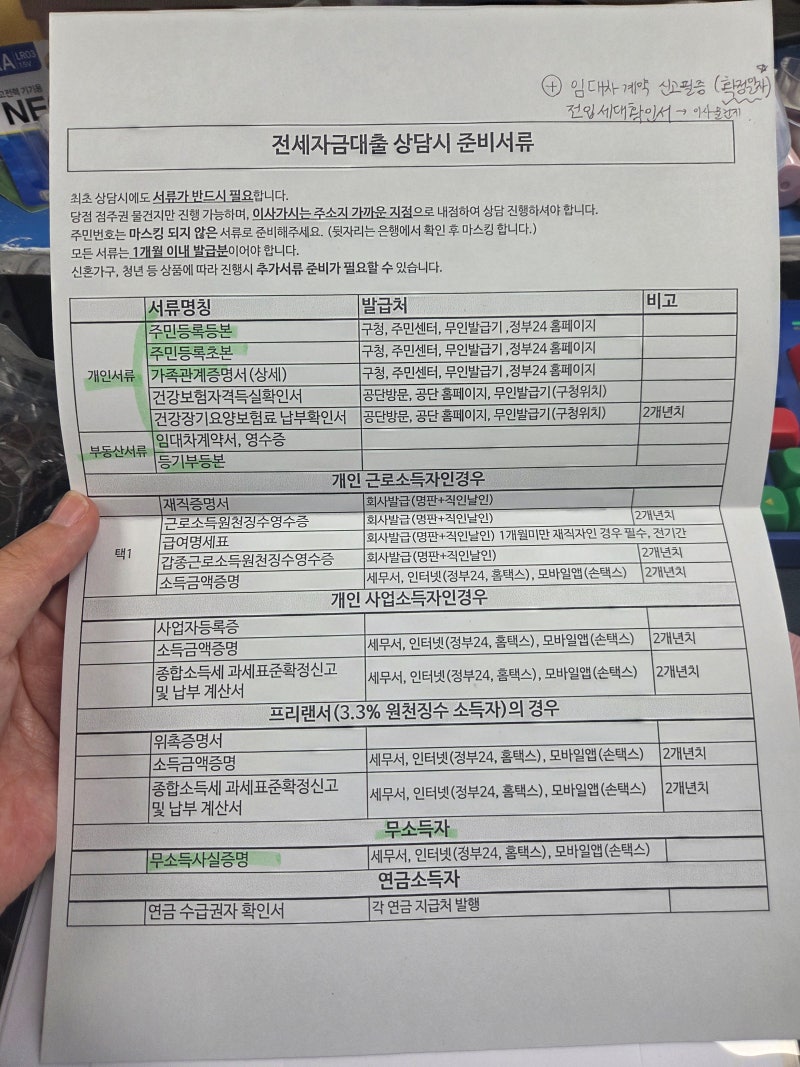 LR03
1.5V
고전력 기기용
NE
⊕ 임대차계약 신고필증 (확정일자)
전입세대확인서 →
전세자금대출 상담시 준비서류
최초 상담시에도 서류가 반드시 필요합니다.
당점 점주권 물건지만 진행 가능하며, 이사가시는 주소지 가까운 지점으로 내점하여 상담 진행하셔야 합니다.
주민번호는 마스킹 되지 않은 서류로 준비해주세요. (뒷자리는 은행에서 확인 후 마스킹 합니다.)
모든 서류는 1개월 이내 발급분이어야 합니다.
신혼가구, 청년 등 상품에 따라 진행시 추가서류 준비가 필요할 수 있습니다.
서류명칭 발급처 비고
개인서류
주민등록등본 구청, 주민센터, 무인발급기 ,정부24 홈페이지
주민등록초본 구청, 주민센터, 무인발급기 ,정부24 홈페이지
가족관계증명서(상세) 구청, 주민센터, 무인발급기 ,정부24 홈페이지
건강보험자격득실확인서 공단방문, 공단 홈페이지, 무인발급기(구청위치)
건강장기요양보험료 납부확인서 공단방문, 공단 홈페이지, 무인발급기(구청위치) 2개년치
부동산서류
임대차계약서, 영수증
등기부등본
개인 근로소득자인경우
재직증명서 회사발급(명판+직인날인)
근로소득원천징수영수증 회사발급(명판+직인날인) 2개년치
택1
급여명세표 회사발급(명판+직인날인) 1개월미만 재직자인 경우 필수, 전기간
갑종근로소득원천징수영수증 회사발급(명판+직인날인) 2개년치
소득금액증명 세무서, 인터넷(정부24, 홈택스), 모바일앱(손택스) 2개년치
개인 사업소득자인경우
사업자등록증
소득금액증명 세무서, 인터넷(정부24, 홈택스), 모바일앱(손택스) 2개년치
종합소득세 과세표준확정신고
및 납부 계산서 세무서, 인터넷(정부24, 홈택스), 모바일앱(손택스) 2개년치
프리랜서(3.3% 원천징수 소득자)의 경우
위촉증명서
소득금액증명 세무서, 인터넷(정부24, 홈택스), 모바일앱(손택스) 2개년치
종합소득세 과세표준확정신고
및 납부 계산서 세무서, 인터넷(정부24, 홈택스), 모바일앱(손택스) 2개년치
무소득자
무소득사실증명 세무서, 인터넷(정부24, 홈택스), 모바일앱(손택스)
연금소득자
연금 수급권자 확인서 각 연금 지급처 발행